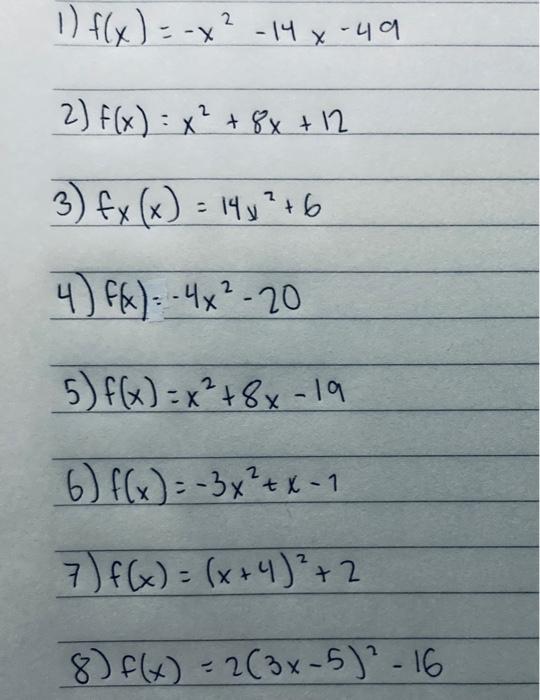 1) f(x) = -x² - 14x - 49
2) f(x) = x² + 8x + 12
3) fx(x) = 14x² + 6
4) f(x) = -4x² - 20
5) f(x) = x² + 8x - 19
6) f(x) = -3x² + x - 1
7) f(x) = (x + 4)² + 2
8) f(x) = 2(3x - 5)² - 16